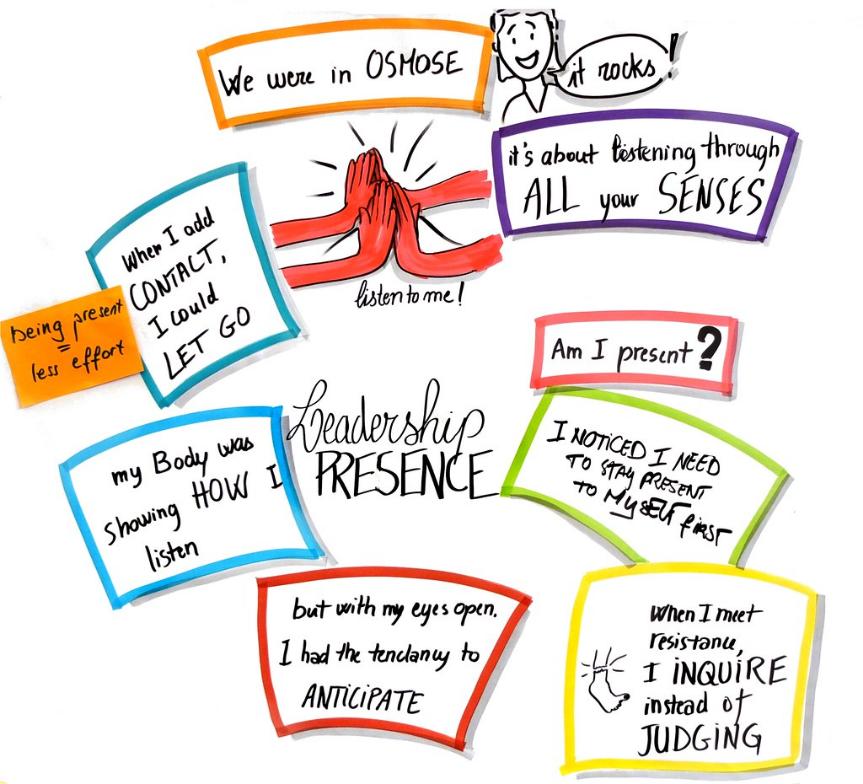 We were in OSMOSE
it rocks!
it's about listening through
ALL your SENSES
When I add
CONTACT,
I could
LET GO
being present
=
less effort
listen to me!
Am I present?
Leadership
PRESENCE
I NOTICED I NEED
TO STAY PRESENT
TO MYSELF first
my Body was
showing HOW I
listen
but with my eyes open.
I had the tendancy to
ANTICIPATE
When I meet
resistance,
I INQUIRE
instead of
JUDGING